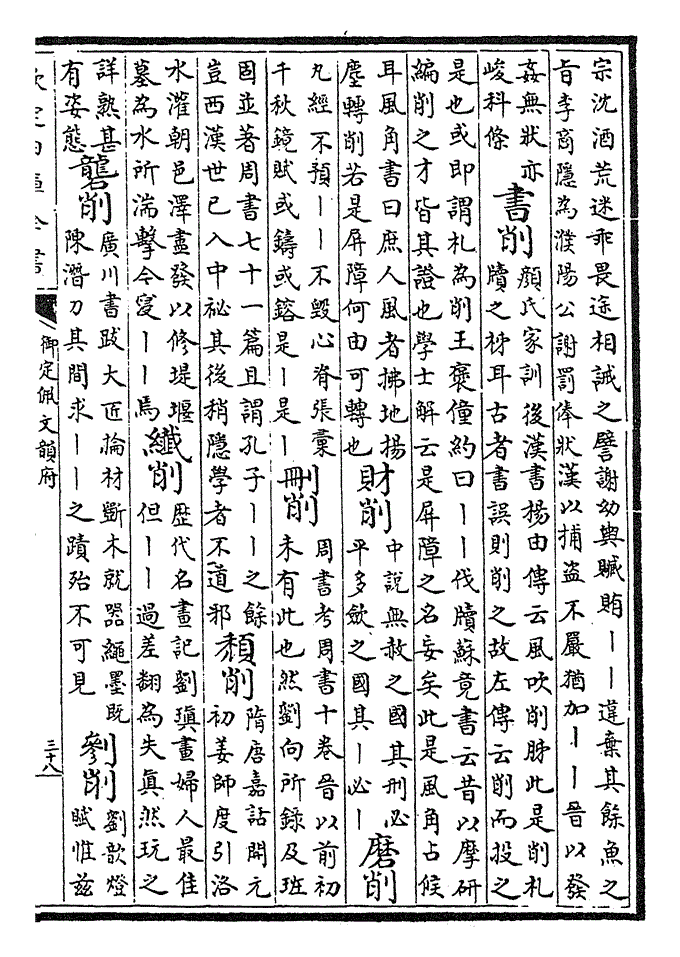 宗沈酒荒迷乖畏途相誡之譬謝幼輿贓賄丨丨違棄其餘魚之
旨李商隱為濮陽公謝罰俸狀漢以捕盜不嚴猶加丨丨晉以發
姦無狀亦
峻科條
書削
顔氏家訓後漢書楊由傳云風吹削肺此是削札
牘之柹耳古者書誤則削之故左傳云削而投之
是也或即謂札為削王褒僮約曰丨丨伐牘蘇竟書云昔以摩研
編削之才皆其證也學士解云是屏障之名妄矣此是風角占候
耳風角書曰庶人風者拂地揚
塵轉削若是屏障何由可轉也
財削
中說無赦之國其刑必
平多歛之國其丨必丨
磨削
丸經不預丨丨不毀心脊張藁
千秋鏡賦或鑄或鎔是丨是丨
刪削
周書考周書十卷晉以前初
未有此也然劉向所錄及班
固並著周書七十一篇且謂孔子丨丨之餘
豈西漢世已入中祕其後稍隱學者不道邪
頹削
隋唐嘉話開元
初姜師度引洛
水灌朝邑澤盡發以修堤堰
墓為水所湍擊今寖丨丨焉
纎削
歴代名畫記劉瑱畫婦人最佳
但丨丨過差翻為失真然玩之
詳熟甚
有姿態
礱削
廣川書跋大匠掄材斷木就器繩墨既
陳濳刀其間求丨丨之蹟殆不可見
劉歆燈
賦惟兹
欽定四庫全書
御定佩文韻府
三十八